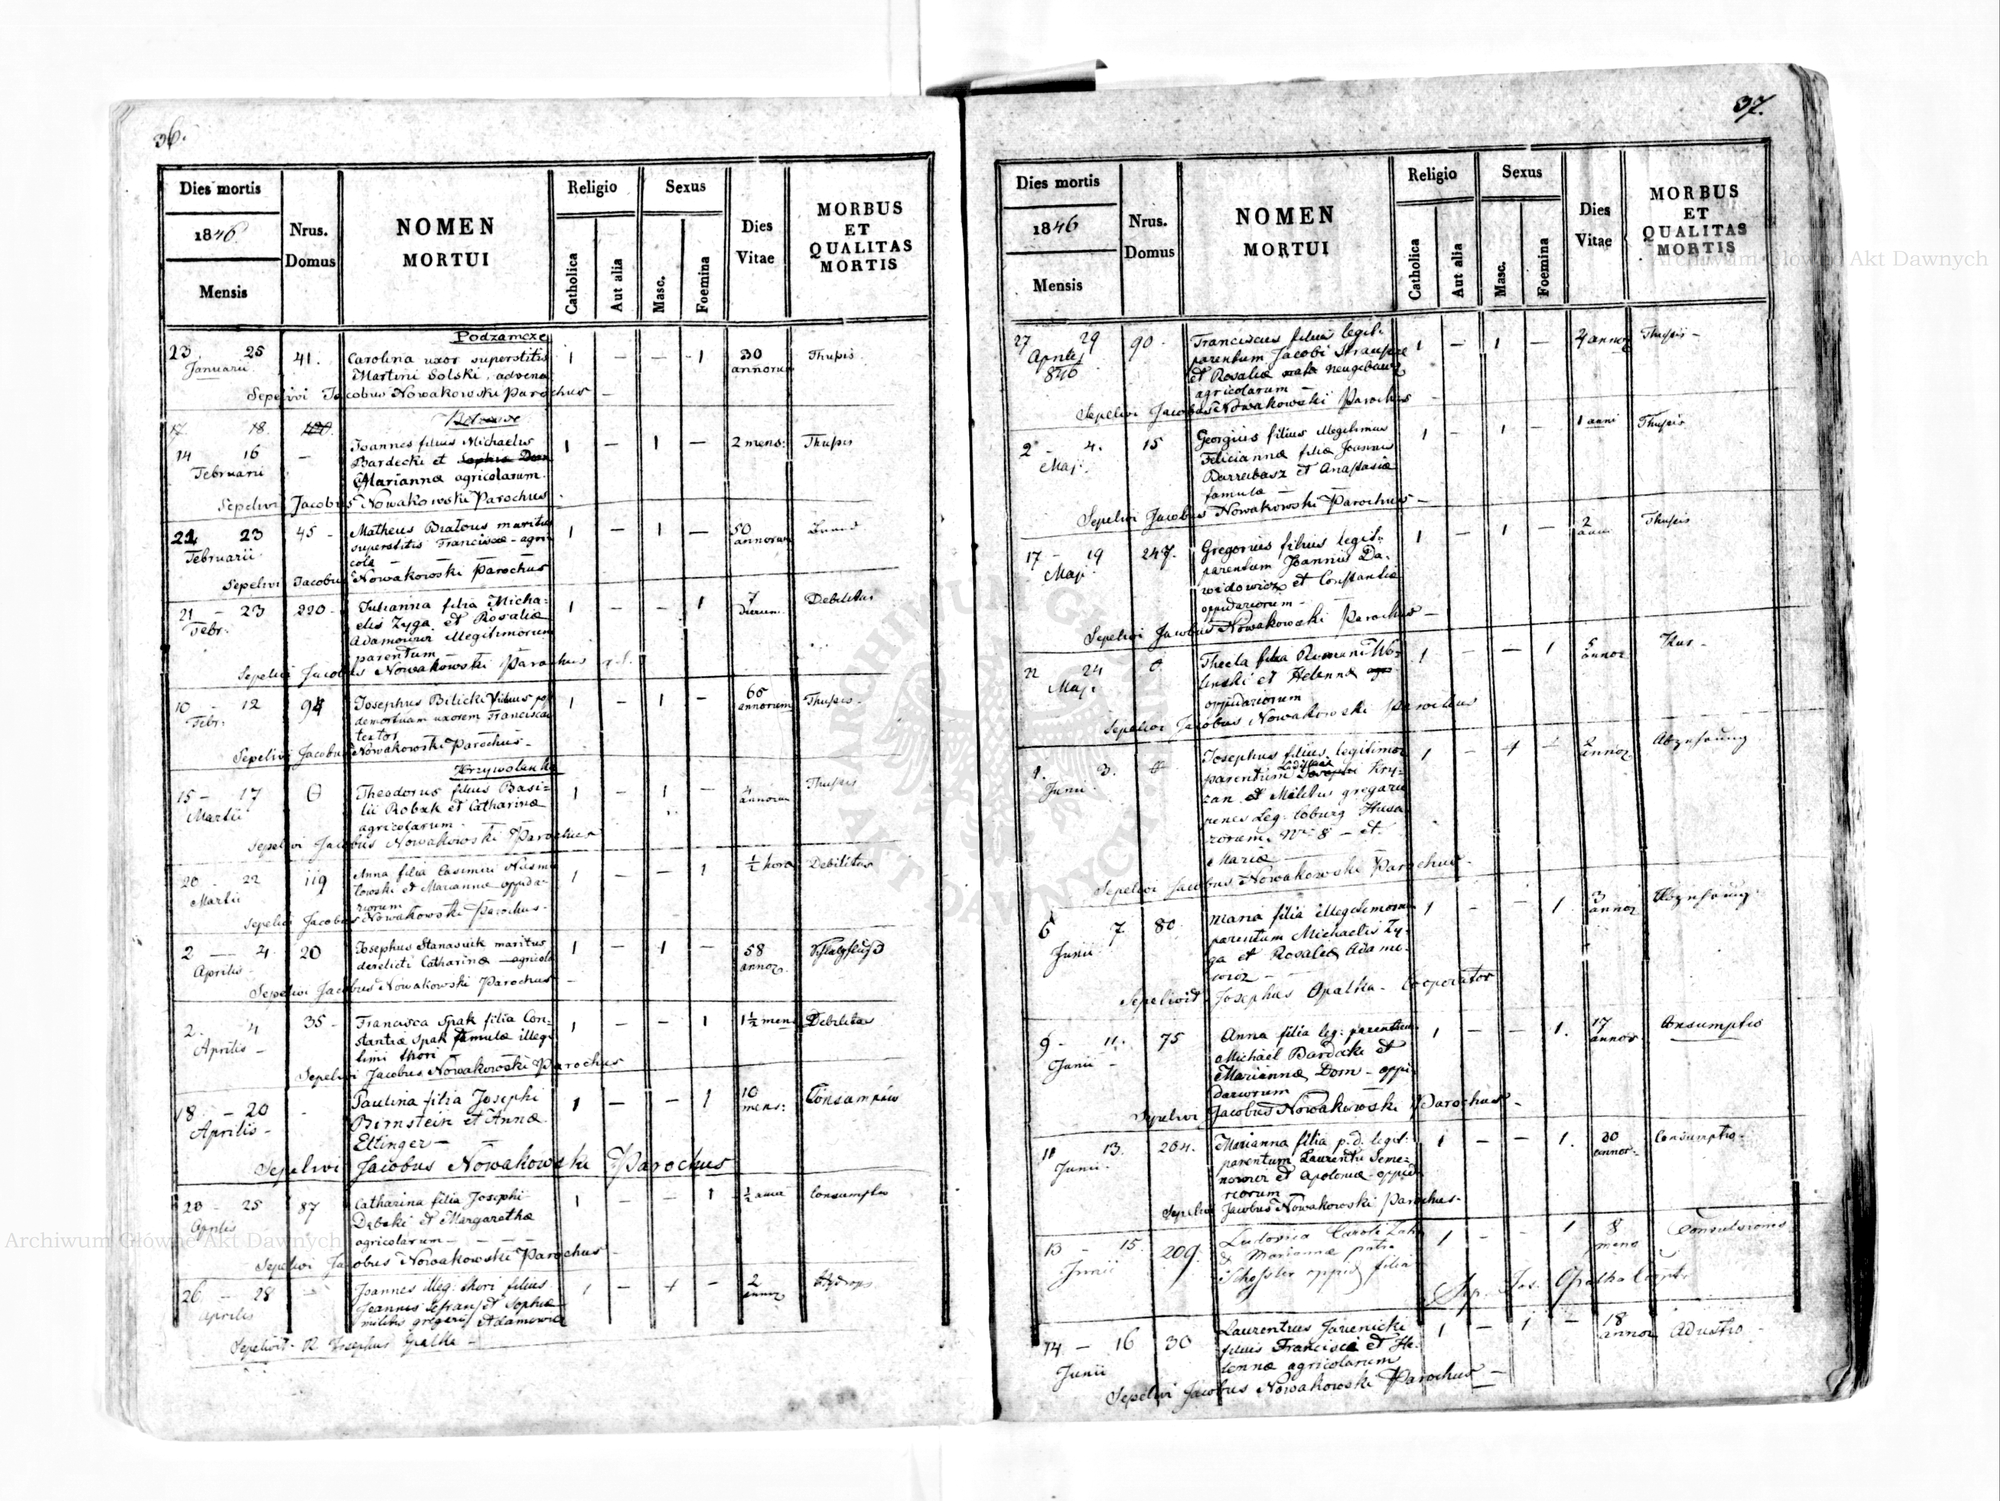 36.
Dies mortis
1846
Mensis
Nrus.
Domus
NOMEN
MORTUI
Religio
Catholica
Aut alia
Sexus
Masc.
Foemina
Dies
Vitae
MORBUS
ET
QUALITAS
MORTIS
Podzamcze
23. 25 41. Carolina uxor superstitis 1 — — 1 30 Thysis
Januarii Martini Solski, advena annorum
Sepelivi Jacobus Nowakowski Parochus —
17 18.
14 16 — Joannes filius Michaelis 1 — 1 — 2 mens: Thysis
Februarii Bardecki et
Mariannæ agricolarum.
Sepelivi Jacobus Nowakowski Parochus
23 45 — Matheus Bratous maritus 1 — 1 — 50
Februarii superstitis Franciscæ — agri annorum
cola —
Sepelivi Jacobus Nowakowski Parochus
21 — 23 220 — Julianna filia Micha- 1 — — 1 7 Debilitas
Febr: elis Zyga et Rosaliæ dierum
Adamowicz illegitimorum
parentum
Sepelivi Jacobus Nowakowski Parochus
10 — 12 94 Josephus Bilicki viduus post 1 — 1 — 65 Thysis —
Febr: demortuam uxorem Francisca annorum
textor
Sepelivi Jacobus Nowakowski Parochus —
Krzywolanka
15 — 17 Theodorus filius Basi- 1 — 1 — 4 Thysis
Martii lii Robak et Catharinæ annorum
agricolarum —
Sepelivi Jacobus Nowakowski Parochus
20 — 22 119 Anna filia Casimiri 1 — — 1 ½ hora Debilitas
Martii et Mariannæ oppida-
riorum
Sepelivi Jacobus Nowakowski Parochus —
2 — 4. 20 Josephus Stanasiuk maritus 1 — 1 — 58
Aprilis derelicti Catharinæ — agricola annor.
Sepelivi Jacobus Nowakowski Parochus —
2. 4 35 — Francisca Spak filia Con- 1 — — 1 1½ mens Debilitas
Aprilis — stantiæ Spak famulæ illegi
timi thori
Sepelivi Jacobus Nowakowski Parochus
18 — 20 Paulina filia Josephi 1 — — 1 10 Consumptio
Aprilis — Birnstein et Annæ mens:
Ettinger —
Sepelivi Jacobus Nowakowski Parochus
23 — 25 87 Catharina filia Josephi 1 — — 1 ½ anni Consumptio
Aprilis Dębski et Margarethæ
agricolarum — — —
Sepelivi Jacobus Nowakowski Parochus
26 — 28 Joannes illeg: thori filius 1 — 1 — 2 Hydrops
Aprilis et Sophiæ annor
militis gregarii Adamowicz
Sepelivit R. Josephus Opalka —
37.
Dies mortis
1846
Mensis
Nrus.
Domus
NOMEN
MORTUI
Religio
Catholica
Aut alia
Sexus
Masc.
Foemina
Dies
Vitae
MORBUS
ET
QUALITAS
MORTIS
27 29 90 — Franciscus filius legit: 1 — 1 — annor Thysis —
Aprilis parentum Jacobi
846 et Rosaliæ natæ
agricolarum —
Sepelivi Jacobus Nowakowski Parochus —
2 — 4. 15 Georgius filius illegitimus 1 — 1 — 1 anni Thysis
Maji Feliciannæ filiæ Joannis
et Anastasiæ
famula —
Sepelivi Jacobus Nowakowski Parochus —
17 — 19 247. Gregorius filius legit: 1 — 1 — 2 Thysis
Maji parentum Joannis Da-
widowicz et Constantiæ
oppidariorum —
Sepelivi Jacobus Nowakowski Parochus —
22 24 Thecla filia Romani 1 — — 1 annor
Maji et Helenæ
oppidariorum
Sepelivi Jacobus Nowakowski Parochus
1. 3. Josephus filius legitimor 1 — 1 — 2 Abzehrung
Junii parentum Kry- annor
zan et Militis gregarii
penes Leg: Coburg Husa
rorum Nro 8 — et
Mariæ
Sepelivi Jacobus Nowakowski Parochus —
6 7 80 Maria filia illegitimorum 1 — — 1 3 Abzehrung
Junii parentum Michaelis Zy- annor
ga et Rosaliæ Adamo-
wicz —
Sepelivit Josephus Opalka — Cooperator
9 — 11. 75 Anna filia leg: parentum 1 — — 1. 17 Consumptio
Junii — Michael Bardecki et annor
Mariannæ Dom — oppi
dariorum
Sepelivi Jacobus Nowakowski Parochus —
11 13. 204. Marianna filia p. d. legit: 1 — — 1. 30 Consumptio
Junii parentum Laurentii Seme- annor
nowicz et Apoloniæ — oppida
riorum
Sepelivi Jacobus Nowakowski Parochus —
13 — 15. 209. Ludovica Caroli 1 — — 1 8 Convulsionis
Junii & Mariannæ mens
Schessler oppid filia
Sep. Jos. Opalka Coop
14 — 16 30 Laurentius Jawienicki 1 — 1 — 18 Adustio —
Junii filius Francisci et He- annor
lennæ agricolarum
Sepelivi Jacobus Nowakowski Parochus —
ARCHIWUM GŁÓWNE AKT DAWNYCH
Archiwum Główne Akt Dawnych
Archiwum Główne Akt Dawnych